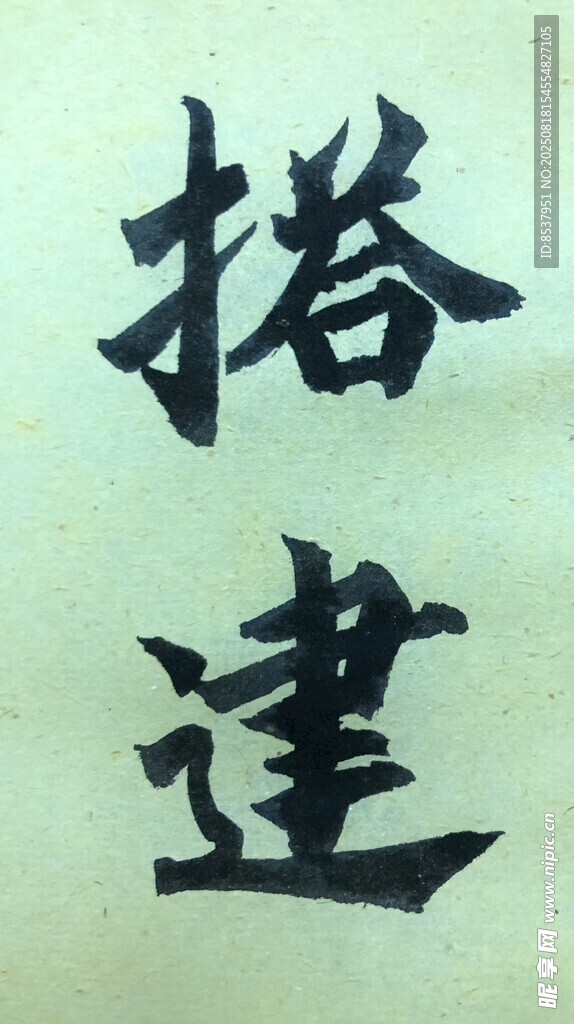 搭
建
ID:8537951 NO:20250818154554827105
昵享网 www.nipic.cn